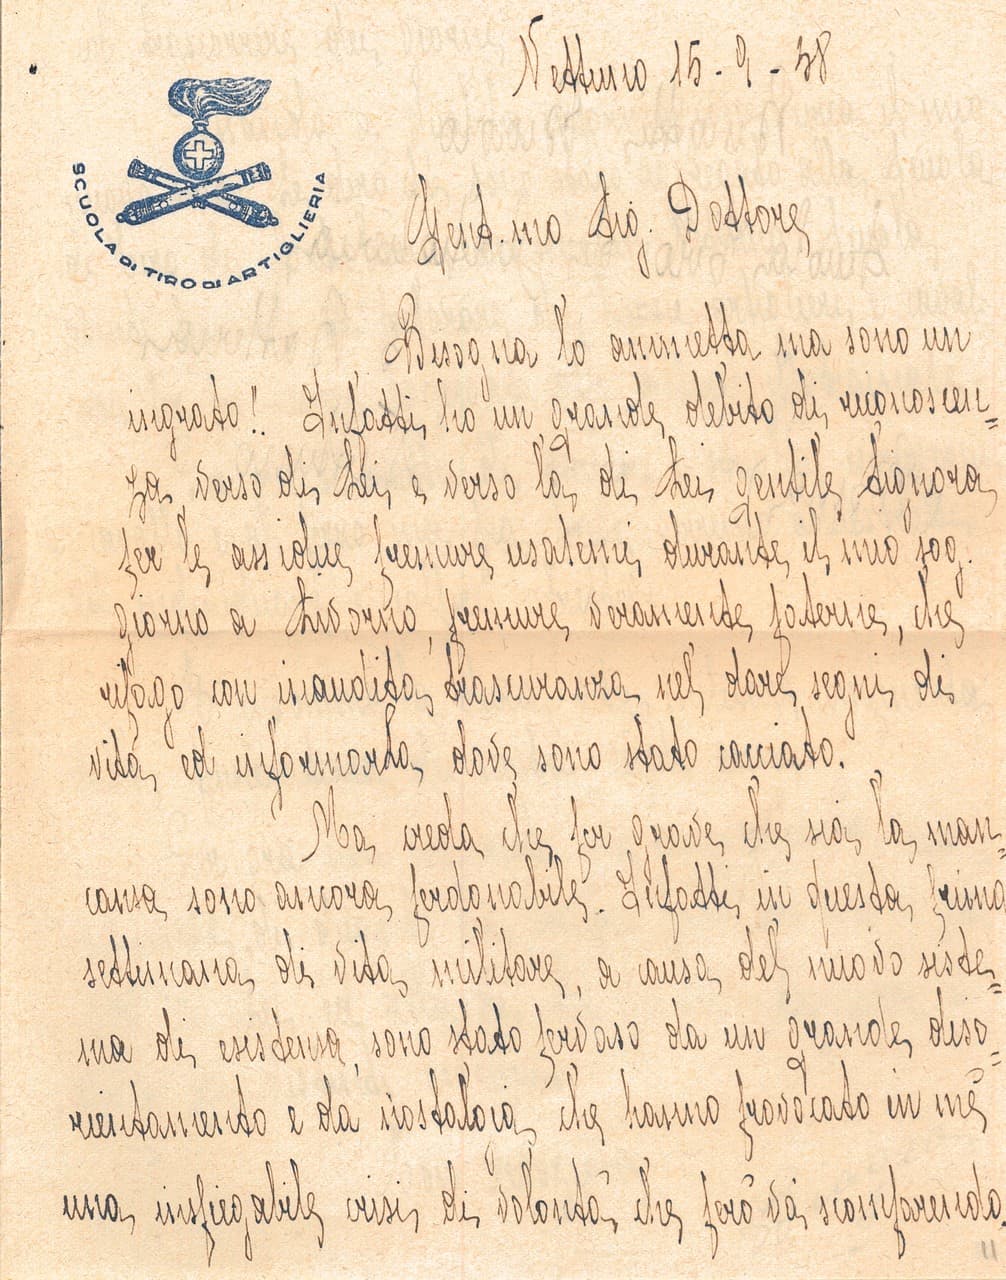 Nettuno 15-9-38
SCUOLA DI TIRO DI ARTIGLIERIA
Gent.mo Sig. Dottore,
Bisogna lo ammetta ma sono un
ingrato! Infatti ho un grande debito di riconoscen=
za verso di Lei e verso la di Lei gentile Signora
per le assidue premure usatemi durante il mio sog.
giorno a Livorno, premure veramente paterne, che
ripago con inaudita trascuranza nel dare segni di
vita ed informarLa dove sono stato cacciato.
Ma creda che per grave che sia la man-
canza sono ancora perdonabile. Infatti in questa prima
settimana di vita militare, a causa del nuovo siste=
ma di esistenza, sono stato pervaso da un grande diso=
rientamento e da nostalgia che hanno provocato in me
una inspiegabile crisi di volontà che però và scomparendo.
11